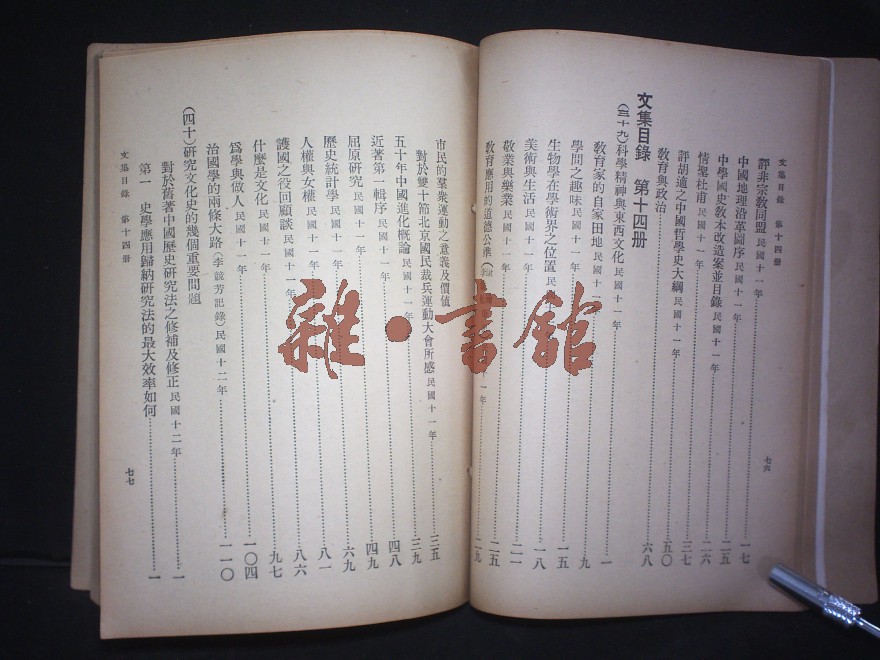 文集目錄　第十四册
評非宗教同盟 民國十一年 一七
中國地理沿革圖序 民國十一年 二五
中學國史教本改造案並目錄 民國十一年 二六
情聖杜甫 民國十一年 三七
評胡適之中國哲學史大綱 民國十一年 五〇
教育與政治 六八
文集目錄　第十四册
(三十九)科學精神與東西文化 民國十一年 一
教育家的自家田地 民國十一年 九
學問之趣味 民國十一年 一五
生物學在學術界之位置 一八
美術與生活 民國十一年 二一
敬業與樂業 民國十一年 二五
教育應用的道德公準 二九
七六
市民的羣衆運動之意義及價值
對於雙十節北京國民裁兵運動大會所感 民國十一年 三五
五十年中國進化概論 民國十一年 三九
近著第一輯序 民國十一年 四八
屈原研究 民國十一年 四九
歷史統計學 民國十一年 六九
人權與女權 民國十一年 八一
護國之役回顧談 民國十一年 八六
什麼是文化 民國十一年 九七
爲學與做人 民國十一年 一〇四
治國學的兩條大路(李競芳記錄) 民國十二年 一一〇
(四十)研究文化史的幾個重要問題
對於舊著中國歷史研究法之修補及修正 民國十二年 一
第一　史學應用歸納研究法的最大效率如何 一
文集目錄　第十四册
七七
雜·書館